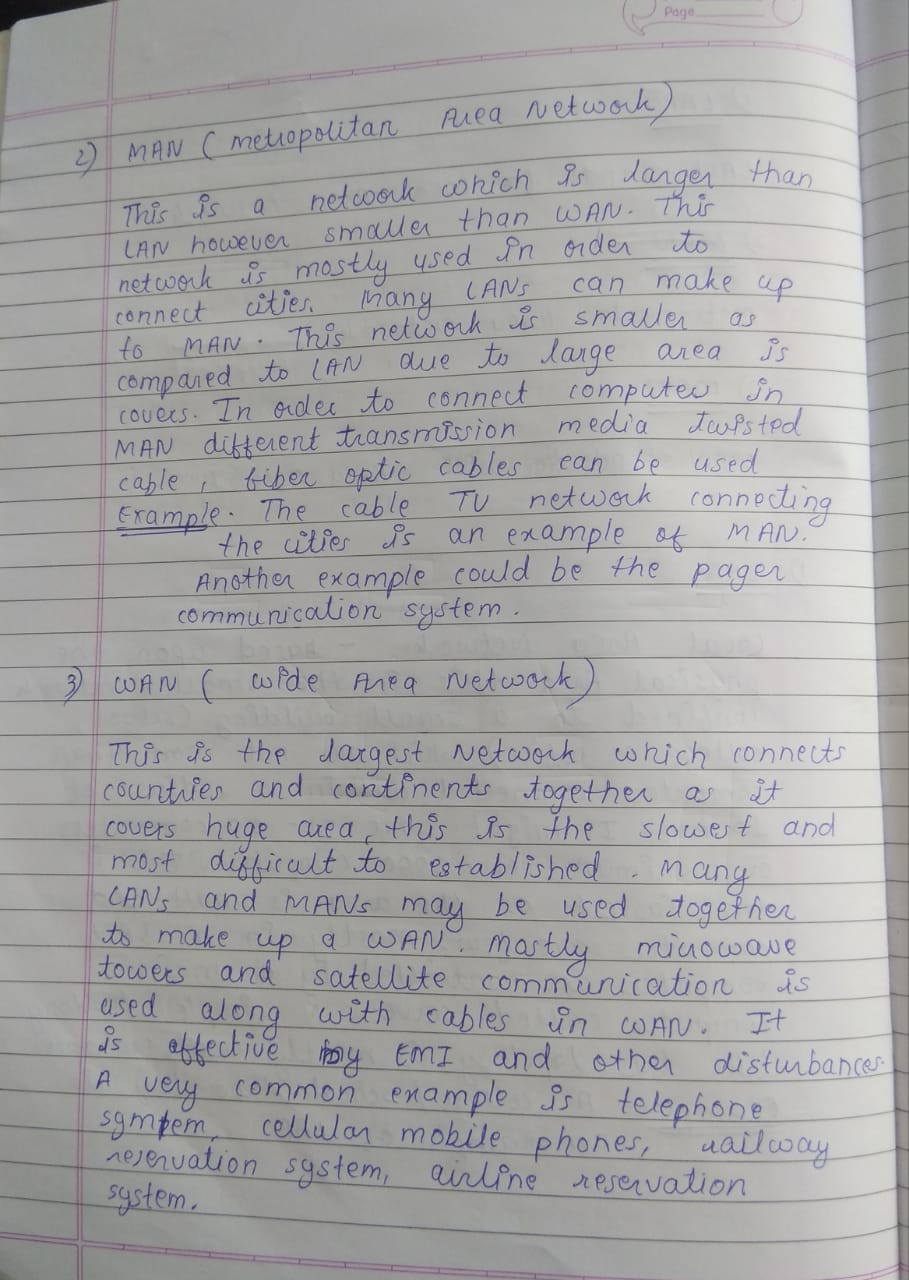 Page
2) MAN ( Metropolitan Area Network)
This is a network which is larger than
LAN however smaller than WAN. This
network is mostly used in order to
connect cities. Many LANs can make up
to MAN. This network is smaller as
compared to LAN due to large area is
covers. In order to connect computer in
MAN different transmission media twisted
cable, fiber optic cables can be used
Example. The cable TV network connecting
the cities is an example of MAN.
Another example could be the pager
communication system.
3) WAN ( Wide Area Network)
This is the largest Network which connects
countries and continents together as it
covers huge area, this is the slowest and
most difficult to established. Many
LANs and MANs may be used together
to make up a WAN. Mostly microwave
towers and satellite communication is
used along with cables in WAN. It
is affective by EMI and other disturbances.
A very common example is telephone
symtem, cellular mobile phones, railway
reservation system, airline reservation
system.